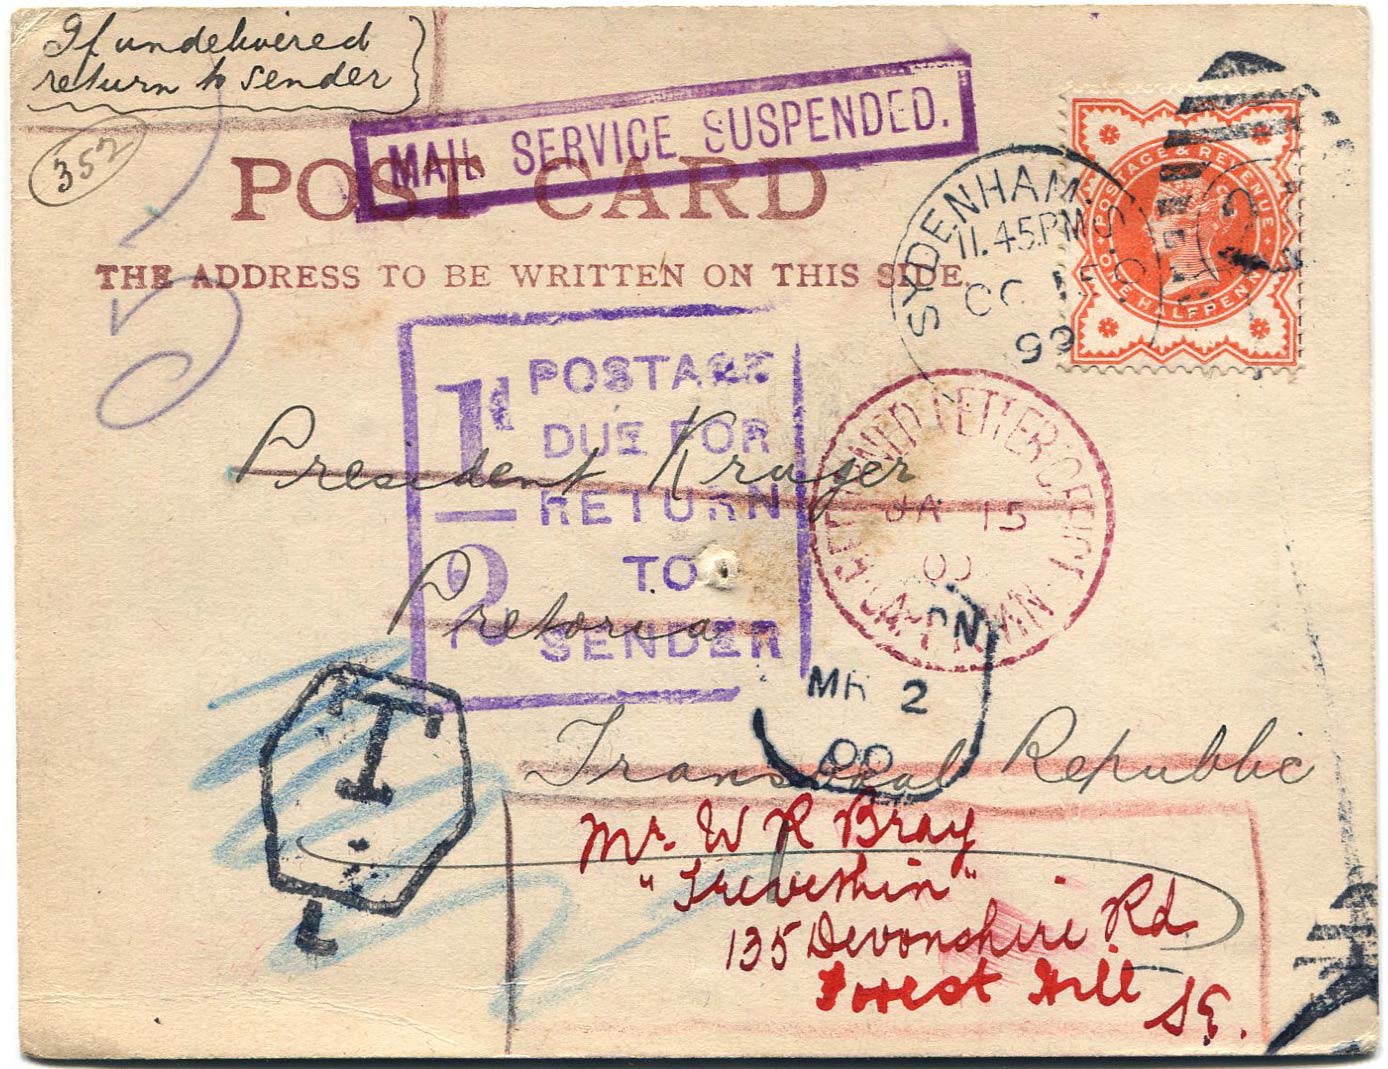 If undelivered
return to sender
352
MAIL SERVICE SUSPENDED.
POST CARD
THE ADDRESS TO BE WRITTEN ON THIS SIDE.
POSTAGE & REVENUE
ONE HALFPENNY
SYDENHAM. S.O
11.45PM
OC 15
99
1d
2
POSTAGE
DUE FOR
RETURN
TO
SENDER
RETURNED LETTER OFFICE
JA 15
00
President Kruger
Pretoria
Transvaal Republic
MR 2
00
T
Mr. W R Bray
"Trevethin"
135 Devonshire Rd
Forest Hill
S.E.